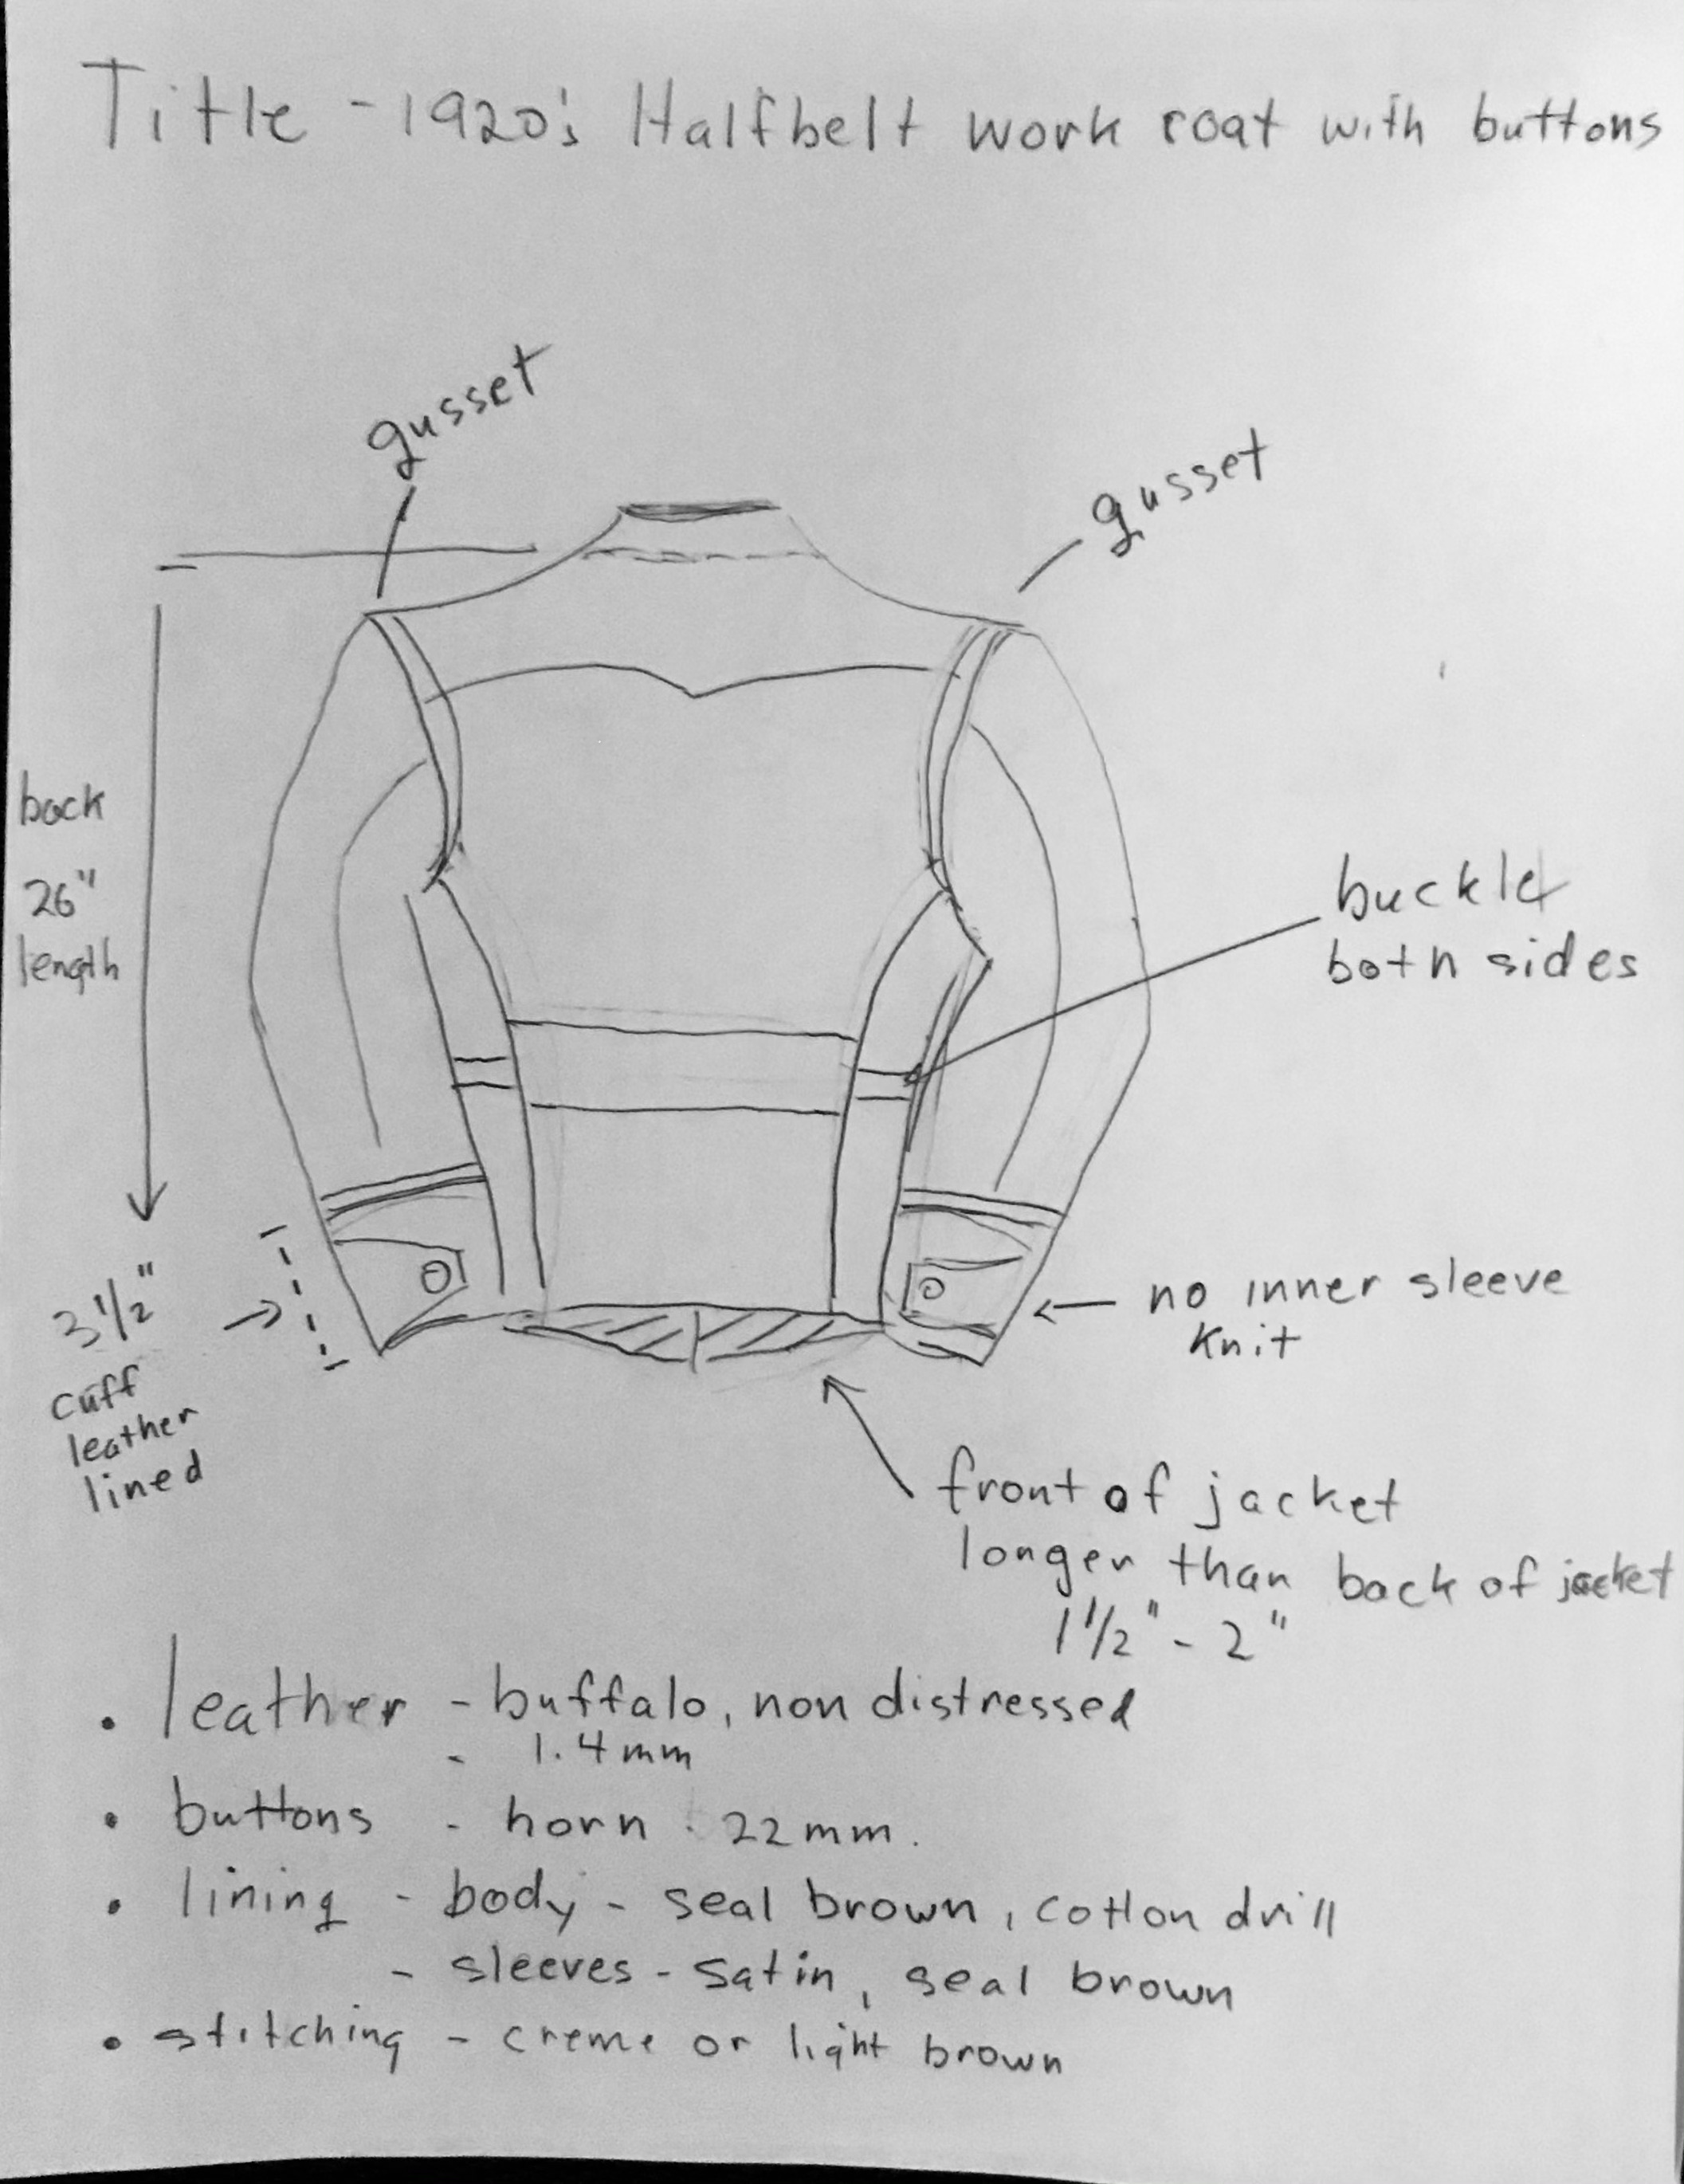 Title - 1920's Halfbelt work coat with buttons
gusset
gusset
back
26"
length
buckle
both sides
3 1/2"
cuff
leather
lined
no inner sleeve
knit
front of jacket
longer than back of jacket
1 1/2" - 2"
• leather - buffalo, non distressed
- 1.4mm
• buttons - horn 22mm.
• lining - body - seal brown, cotton drill
- sleeves - satin, seal brown
• stitching - creme or light brown